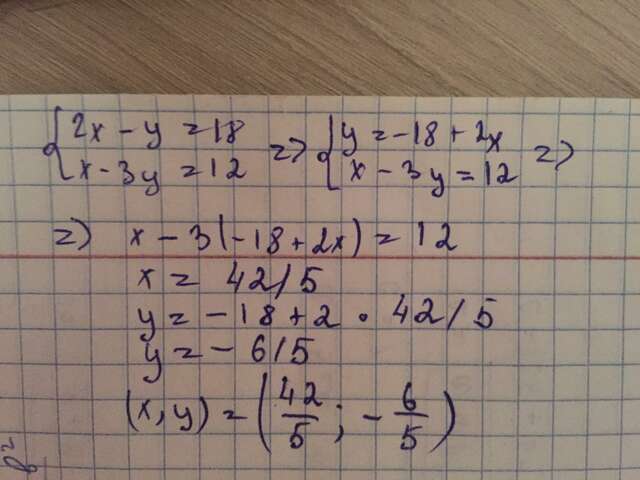 {2x - y = 18 => {y = -18 + 2x =>
{x - 3y = 12 {x - 3y = 12
=> x - 3(-18 + 2x) = 12
x = 42/5
y = -18 + 2 · 42/5
y = -6/5
(x, y) = (42/5 ; -6/5)